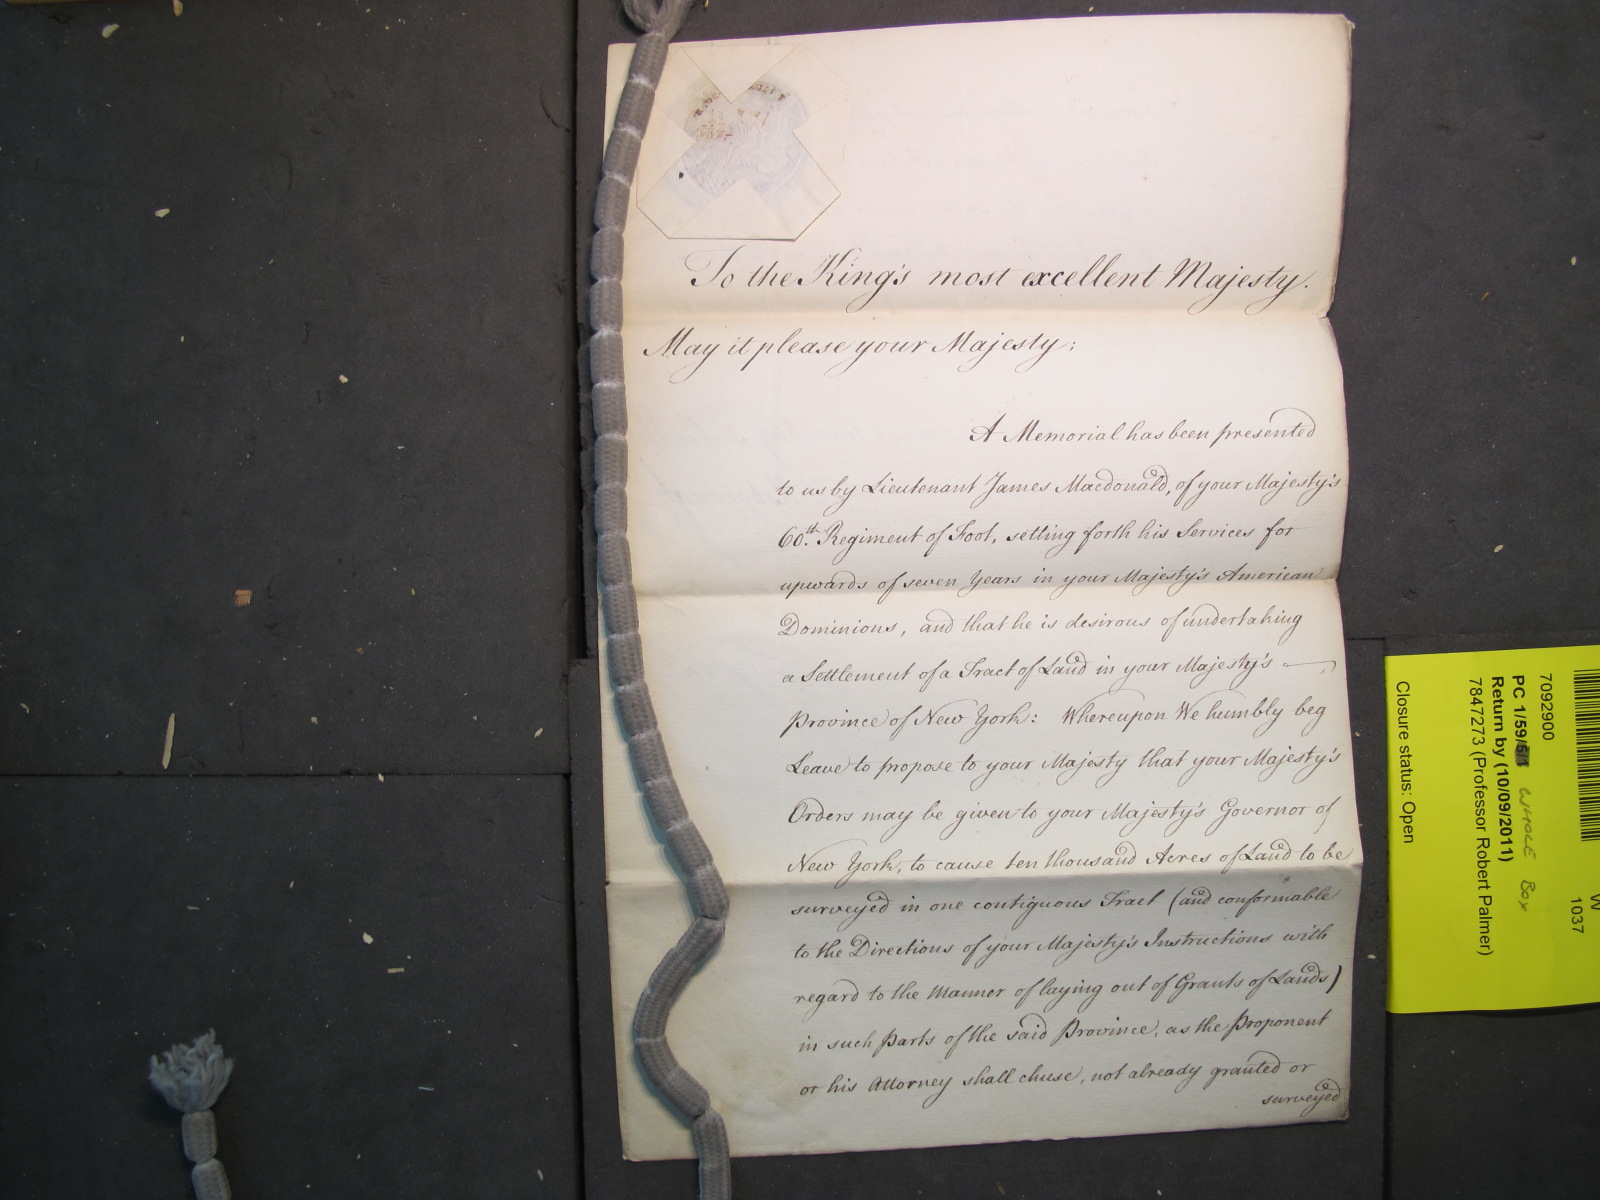 To the King's most excellent Majesty.
May it please your Majesty;
A Memorial has been presented
to us by Lieutenant James Macdonald, of your Majesty's
60.th Regiment of Foot, setting forth his Services for
upwards of seven Years in your Majesty's American
Dominions, and that he is desirous of undertaking
a Settlement of a Tract of Land in your Majesty's
Province of New York: Whereupon We humbly beg
Leave to propose to your Majesty that your Majesty's
Orders may be given to your Majesty's Governor of
New York, to cause ten thousand Acres of Land to be
surveyed in one contiguous Tract (and conformable
to the Directions of your Majesty's Instructions with
regard to the Manner of laying out of Grants of Lands)
in such Parts of the said Province, as the Proponent
or his Attorney shall chuse, not already granted or
surveyed
W
1037
7092900
PC 1/59/5/1 WHOLE BOX
Return by (10/09/2011)
7847273 (Professor Robert Palmer)
Closure status: Open